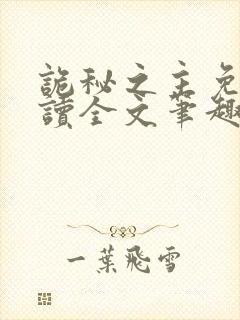 詭秘之主免
讀全文筆趣
一葉飛雪